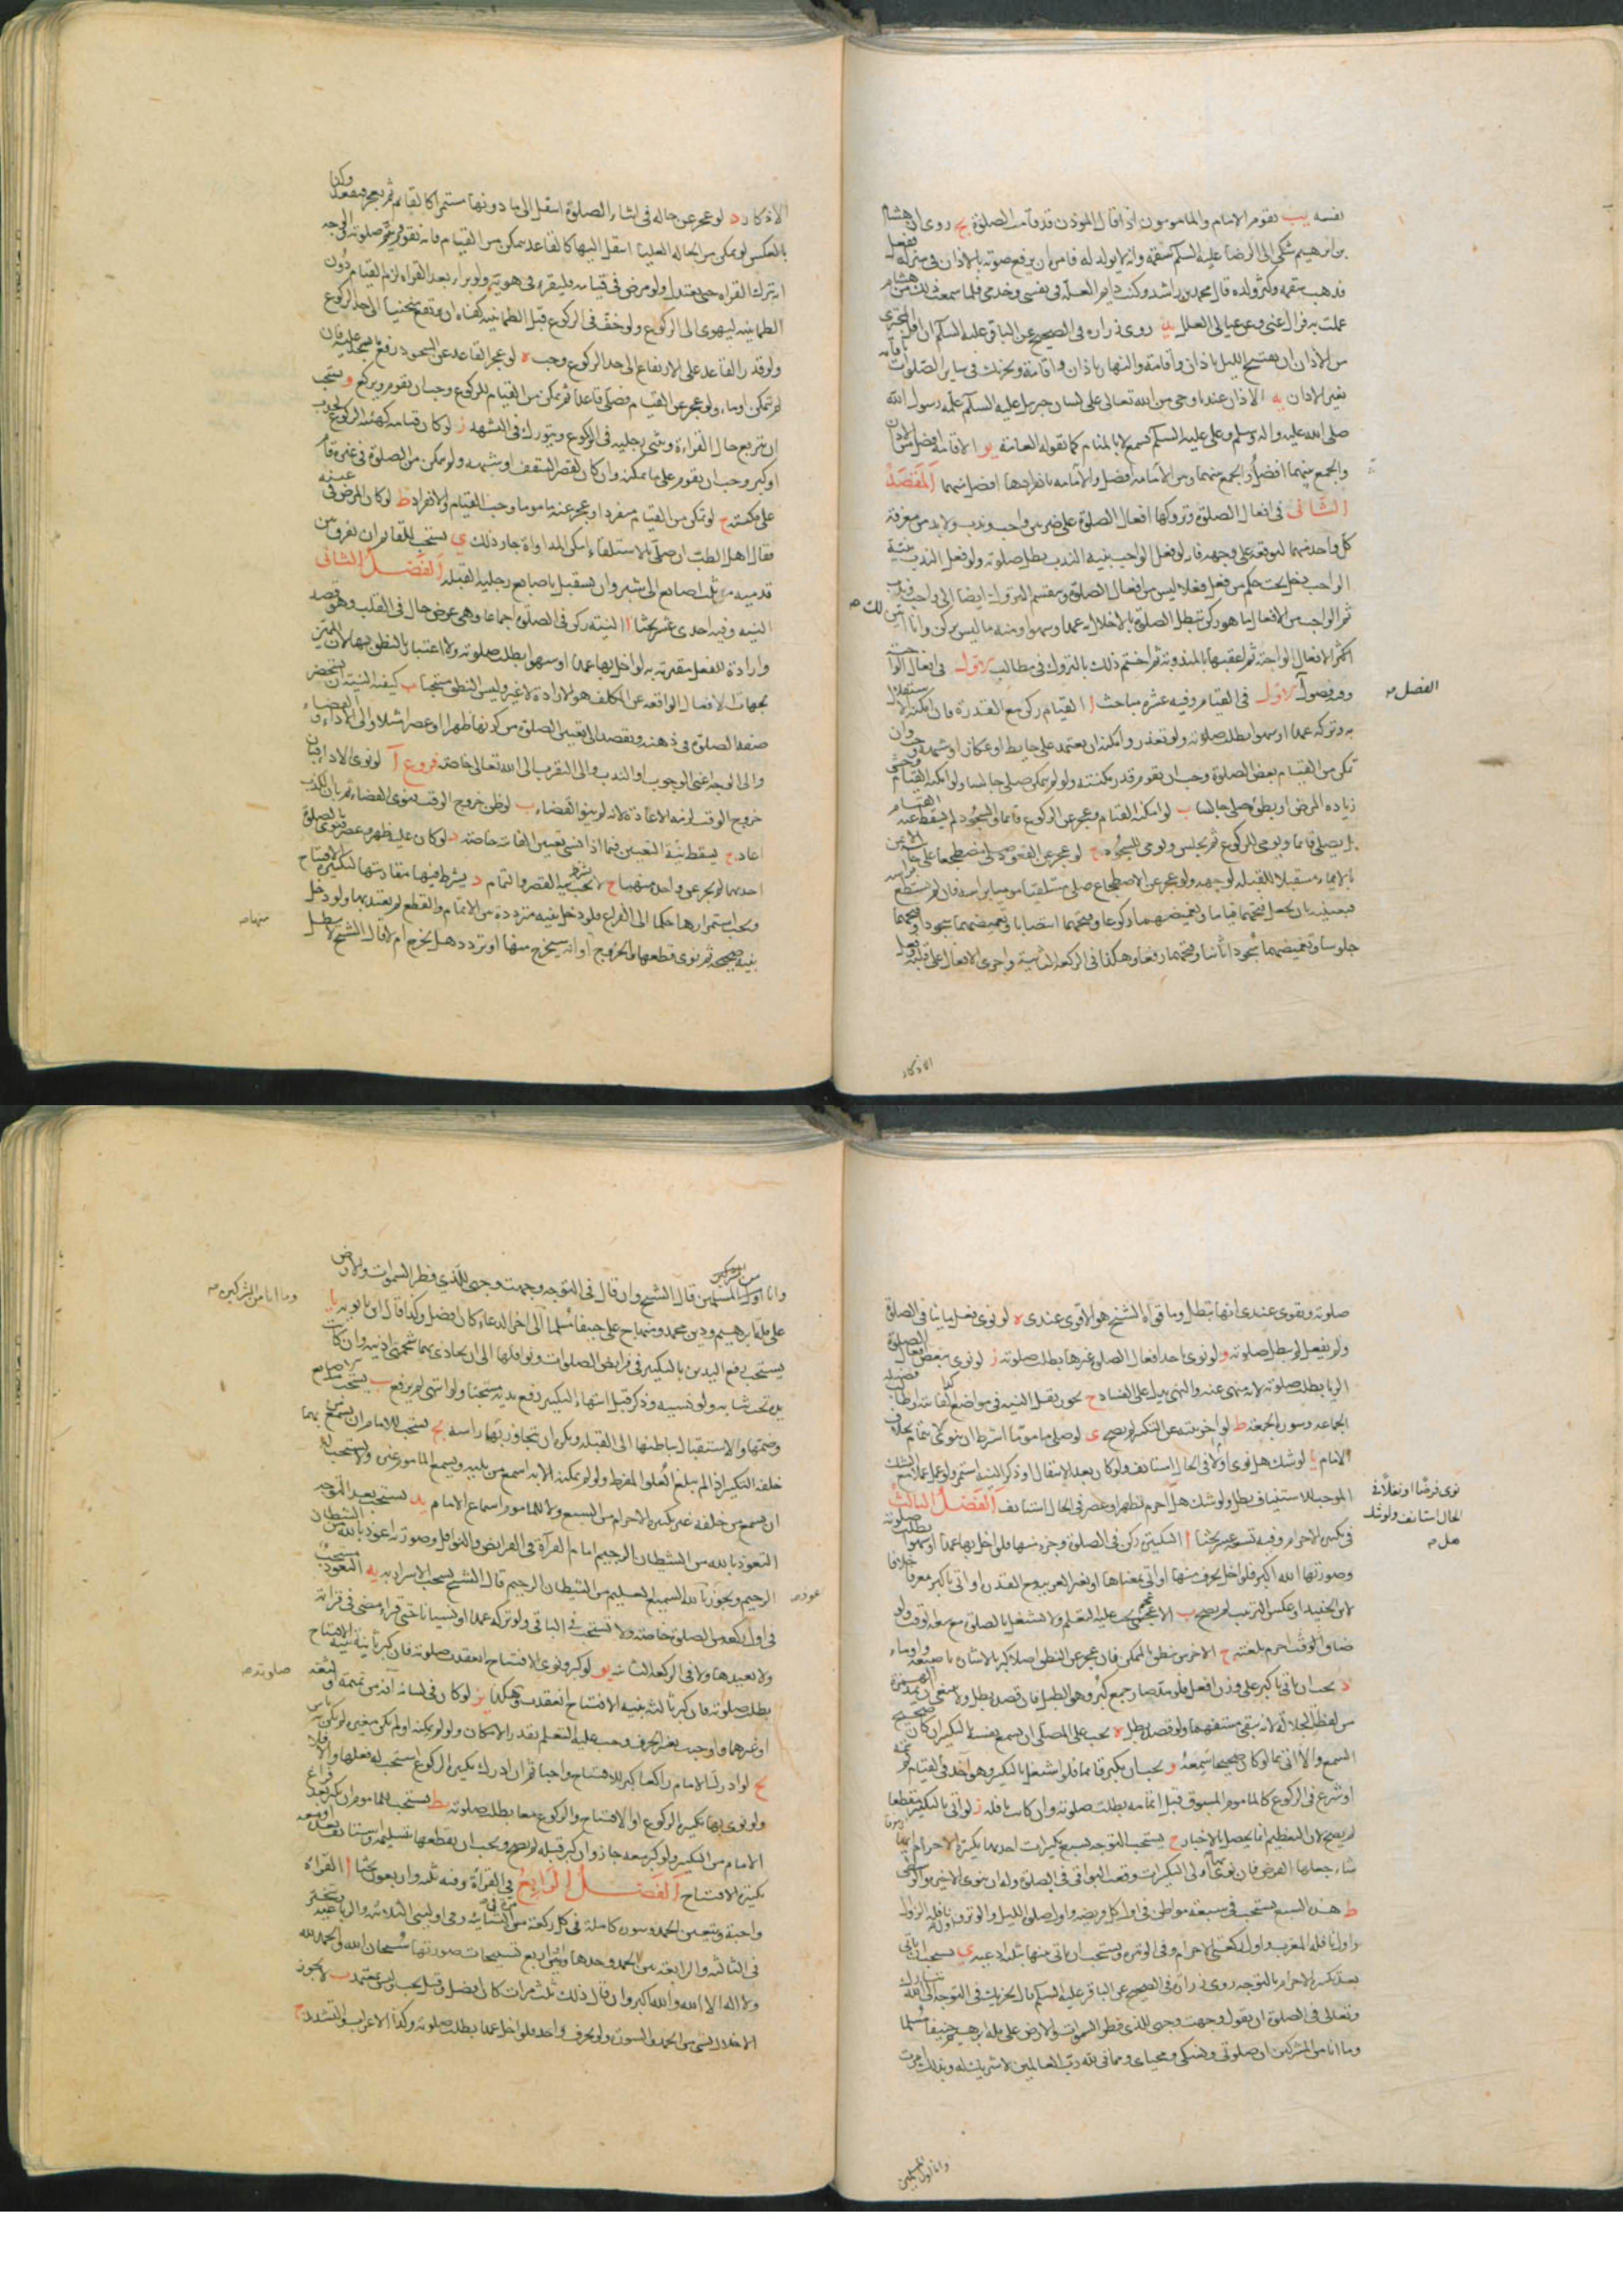 نفسه يب يقوم الامام والمامومون اذا قال الموذن قد قامت الصلوة يج روى ان هشام
بن ابرهيم شكى الى الرضا عليه السلم سقمه وانه لا يولد له فامره ان يرفع صوته بالاذان فى منزله ففعل
فذهب سقمه وكثر ولده قال محمد بن راشد وكنت دايم العلة فى نفسى وخدمى فلما سمعت ذلك من هشام
عملت به فزال عنى وعن عيالى العلل يد روى زراره فى الصحيح عن الباقر عليه السلم ان اقل المجزى
من الاذان ان يفتتح الليل باذان واقامة والنهار باذان واقامة ويجزيك فى ساير الصلوات اقامه
بغير الاذان يه الاذان عندنا وحى من الله تعالى على لسان جبريل عليه السلم علمه رسول الله
صلى الله عليه واله وسلم وعلى عليه السلم يسمع لا بالمنام كما تقوله العامة يو الاقامة افضل من الاذان
والجمع بينهما افضل والجمع بينهما وبين الامامة افضل والامامه بانفرادها افضل منهما المقصد
الثانى فى افعال الصلوة وتروكها افعال الصلوة على ضربين واجب وندب ولابد من معرفة
كل واحد منهما ليوقعه على وجهه فانه لو فعل الواجب بنية الندب بطل صلوته ولو فعل الندب بنية
الواجب دخل تحت حكم من فعل فعلا ليس من افعال الصلوة وينقسم التروك ايضا الى واجب وندب
ثم الواجب من الافعال اما هو ركن تبطل الصلوة بالاخلال به عمدا وسهوا ومنه ما ليس بركن وانا ابين لك
اكثر الافعال الواجبة ثم اعقبها بالمندوبة ثم اختم ذلك بالتروك فى مطالب الاول فى افعال الواجبة
وفيه فصول الاول فى القيام وفيه عشرة مباحث ا القيام ركن مع القدرة فان امكنه الاستقلال
به وتركه عمدا او سهوا بطلت صلوته ولو تعذر وامكنه ان يعتمد على حايط او عكاز او شبهه وجب وان
تمكن من القيام بعض الصلوة وجب ان يقوم قدر مكنته ولو لم يتمكن صلى جالسا ولو امكنه القيام وخشى
زياده المرض او بطؤه صلى جالسا ب لو امكنه القيام وعجز عن الركوع قايما او السجود لم يسقط عنه القيام
بل يصلى قايما ويومى للركوع ثم يجلس ويومى للسجود ج لو عجز عن القعود صلى مضطجعا على جانبه الايمن
بالايماء مستقبلا للقبلة لوجهه ولو عجز عن الاضطجاع صلى مستلقيا موميا براسه فان لم يستطع
فبعينيه بان يجعل فتحهما قياما وتغميضهما ركوعا وفتحهما انتصابا وتغميضهما سجودا وفتحهما
جلوسا وتغميضهما سجودا ثانيا وفتحهما رفعا وهكذا فى الركعة الثانية واجرى الافعال على قلبه
الفصل صح
الاذكار
الاذكار د لو عجز عن حاله فى اثناء الصلوة انتقل الى ما دونها مستمرا كالقايم ثم يعجز فيقعد وكذا
بالعكس لو تمكن من الحاله العليا انتقل اليها كالقاعد يتمكن من القيام فانه يقوم ويتم صلوته الى وجه
ان يترك القراه حتى يعتدل ولو مرض فى قيامه فليقرء فى هويه ولو برء بعد القراه لزم القيام دون
الطمانينه ليهوى الى الركوع ولو خف فى الركوع قبل الطمانينه كفاه ان يرتفع منحنيا الى حد الركوع
ولو قدر القاعد على الارتفاع الى حد الركوع وجب ه لو عجز القاعد عن السجود رفع ما يسجد عليه فان
لم يتمكن اوماء ولو عجز عن القيام فصلى قاعدا ثم تمكن من القيام للركوع وجب ان يقوم ويركع و يستحب
ان يتربع حال القراءة ويثنى رجليه فى الركوع ويتورك فى التشهد ز لو كان قيامه كهيئة الركوع لحدب
او كبر وجب ان يقوم على ما يمكنه وان كان لقصر السقف او شبهه ولو تمكن من الصلوة فى غيره قام
على مكنته ح لو تمكن من القيام منفردا وعجز عنه ماموما وجب القيام والانفراد ط لو كان المرض فى عينه
فقال اهل الطب ان صلى بالاستلقاء امكن المداواة جاز ذلك ى يستحب للقايم ان يفرق بين
قدميه من ثلث اصابع الى شبر وان يستقبل باصابع رجليه القبله الفصل الثانى
النيه وفيه احدى عشر بحثا ا النيته ركن فى الصلوة اجماعا وهى عرض حال فى القلب وهو قصد
وارادة للفعل مقترنة به لو اخل بها عمدا او سهوا بطلت صلوته ولا اعتبار بالنطق بها لان المميز
بجهات الافعال الواقعه عن المكلف هو الارادة لا غير وليس النطق مستحبا ب كيفية النيته ان يستحضر
صفة الصلوة فى ذهنه ويقصد الى تعيين الصلوة من كونها ظهرا او عصرا مثلا والى الاداء او القضاء
والى الوجه اعنى الوجوب او الندب والى التقرب الى الله تعالى خاصة فروع ا لو نوى الاداء فبان
خروج الوقت لزمه الاعادة لانه لم ينو القضاء ب لو ظن خروج الوقت فنوى القضاء ثم بان الكذب
اعاد ج يسقط نية التعيين فيما اذا نسى تعيين الفايته خاصة د لو كان عليه ظهر وعصر فنوى بالصلوة
احديهما لم يجز عن واحد منهما ج لا تجب نية القصر والتمام د يشترط فيها مقارنتها لتكبيرة الافتتاح
ويجب استمرارها حكما الى الفراغ فلو دخل بنيه مترددة بين الاتمام والقطع لم يعتد بها ولو دخل
بنيه صحيحه ثم نوى قطعها والخروج او انه سيخرج منها او تردد هل يخرج ام لا قال الشيخ لا يبطل
منهما صح
صلوته ويقوى عندى انها تبطل وما قواه الشيخ هو الاقوى عندى ه لو نوى فعل ما ينافى الصلوة
ولم يفعل لم يبطل صلوته و ولو نوى باحد افعال الصلوة غيرها بطلت صلوته ز لو نوى ببعض افعال الصلوة
الريا بطلت صلوته لانه منهى عنه والنهى يدل على الفساد ح يجوز نقل النيه فى مواضع كفايتة وطالب
الجماعه وسورة الجمعه ط لو اخر نيته عن التكبير لم يصح ى لو صلى ماموما اشترط ان ينوى الايتمام بخلاف
الامام يا لو شك هل نوى اولا فى الحال استانف ولو كان بعد الانتقال او ذكر النيه استمر ولو عمل عملا مع الشك
الموجب للاستيناف بطل ولو شك هل احرم بظهر او عصر فى الحال استانف الفصل الثالث
فى تكبيرة الاحرام وفيه تسعة عشر بحثا ا التكبير ركن فى الصلوة وجزء منها فلو اخل بها عمدا او سهوا بطلت صلوته
وصورتها الله اكبر فلو اخل بحرف منها او اتى بمعناها او بغير العربية مع القدرة او اتى باكبر معرفا خلافا
لابن الجنيد او عكس الترتيب لم يصح ب الاعجمى يجب عليه التعلم ولا يتشغل بالصلوة مع سعة الوقت ولو
ضاق الوقت احرم بلغته ج الاخرس ينطق بالممكن فان عجز عن النطق اصلا كبر بالاشارة باصبعه واوماء
د يجب ان ياتى باكبر على وزن افعل فلو مده صار جمع كبر وهو الطبل فان قصده بطل ولا ينبغى ان يمد الهمزة
من لفظة الجلالة لانه يبقى مستفهما ولو قصده بطل ه يجب على المصلى ان يسمع نفسه التكبير ان كان صحيح
السمع والا اتى بما لو كان صحيحا سمعه و يجب ان يكبر قايما فلو اشتغل بالتكبير وهو آخذ فى القيام
او شرع فى الركوع كالماموم المسبوق قبل اتمامه بطلت صلوته وان كانت نافله ز لو اتى بالتكبير منقطعا
لم يصح لان التعظيم انما يحصل بالاخبار ح يستحب التوجه بسبع تكبيرات احديهما تكبيرة الاحرام ايتها
شاء جعلها الفرض فان نوى اولى التكبيرات وقعت البواقى فى الصلوة وله ان ينوى الاخيرة
ط هذه السبع يستحب فى سبعة مواطن فى اول كل فريضه واول صلوة الليل والوتر واول نافله الزوال
واول نافله المغرب واول ركعتى الاحرام وفى الوتيره ويستحب ان ياتى بينها بثلثة ادعية ى يستحب ان ياتى
بعد تكبيرة الاحرام بالتوجه روى زرارة فى الصحيح عن الباقر عليه السلم قال يجزيك فى التوجه الى الله تبارك
وتعالى فى الصلوة ان يقول وجهت وجهى للذى فطر السموات والارض على ملة ابرهيم حنيفا مسلما
وما انا من المشركين ان صلوتى ونسكى ومحياى ومماتى لله رب العالمين لا شريك له وبذلك امرت
نوى فرضا او نفلا فى
الحال استانف ولو شك
هل صح
وانا اول المسلمين
وانا اول المسلمين قال الشيخ وان قال فى التوجه وجهت وجهى للذى فطر السموات والارض
على ملة ابرهيم ودين محمد ومنهاج على حنيفا مسلما الى اخر الدعاء كان افضل وكذا قال ابن بابويه يا
يستحب رفع اليدين بالتكبير فى فرايض الصلوات ونوافلها الى ان يحاذى بهما شحمتى اذنيه وان كانت
يده تحت ثيابه ولو نسيه وذكر قبل انتهاء التكبير رفع يديه مستحبا ولو انتهى لم يرفع يب يستحب مد الاصابع
وضمها والاستقبال بباطنها الى القبله ويكره ان يتجاوز بهما راسه يج يستحب للامام ان يسمع من
خلفه التكبير اذا لم يبلغ العلو المفرط ولو لم يمكنه الابه اسمع من يليه ويسمع الماموم غيره ولا يستحب له
ان يسمع من خلفه غير تكبيرة الاحرام من السبع ولا للماموم اسماع الامام يد يستحب بعد التوجه
التعوذ بالله من الشيطان الرجيم امام القرآة فى الفرايض والنوافل وصورته اعوذ بالله من الشيطان
الرجيم ويجوز بالله السميع العليم من الشيطان الرجيم قال الشيخ يستحب الاسرار به يه التعوذ مستحب
فى اول ركعة من الصلوة خاصة ولا تستحب فى الباقى ولو تركه عمدا او نسيانا حتى قراء مضى فى قراته
ولا يعيدها ولا فى الركعة الثانيه يو لو كبر ونوى الافتتاح انعقدت صلوته فان كبر ثانية بنية الافتتاح
بطلت صلوته فان كبر ثالثه بنيه الافتتاح انعقدت وهكذا يز لو كان فى لسانه آفه من تمتمة او لثغه
او غيرهما واوجبت تغير الحرف وجب عليه التعلم بقدر الامكان ولو لم يمكنه او لم يكن مغيره لم يكن به باس
يح لو ادرك الامام راكعا كبر للافتتاح واجبا ثم ان ادرك تكبيرة الركوع استحب له فعلها والا فلا
ولو نوى بها تكبيرة الركوع او الافتتاح والركوع معا بطلت صلوته يط يستحب للماموم ان يكبر بعد فراغ
الامام من التكبير ولو كبر معه جاز وان كبر قبله لم يصح ويجب ان يقطعها بتسليمه ويستانف بعد او معه
تكبيرة الافتتاح الفصل الرابع فى القراة وفيه ثلثه واربعون بحثا ا القراه
واجبة ويتعين الحمد وسورة كاملة فى كل ركعة من الثنائية وفى اوليتى الثلاثيه والرباعيه ويتخير
فى الثالثه والرابعه بين الحمد وحدها وبين اربع تسبيحات صورتها سبحان الله والحمد لله
ولا اله الا الله والله اكبر وان قال ذلك ثلث مرات كان افضل وقيل يجب وليس بمعتمد ب لا يجوز
الاخلال بشى من الحمد والسورة ولو بحرف واحد فلو اخل عمدا بطلت صلوته وكذا الاعراب والتشديد ج
وما انا من المشركين صح
اعوذ صح
صلوته صح